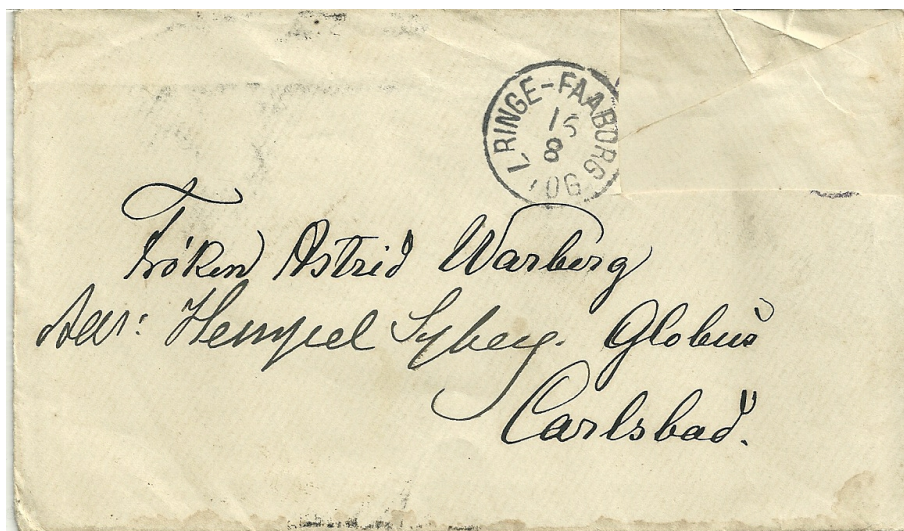 L. RINGE-FAABORG
15
8
TOG
Frøken Astrid Warberg
Adr: Hempel Syberg. Globus
Carlsbad.